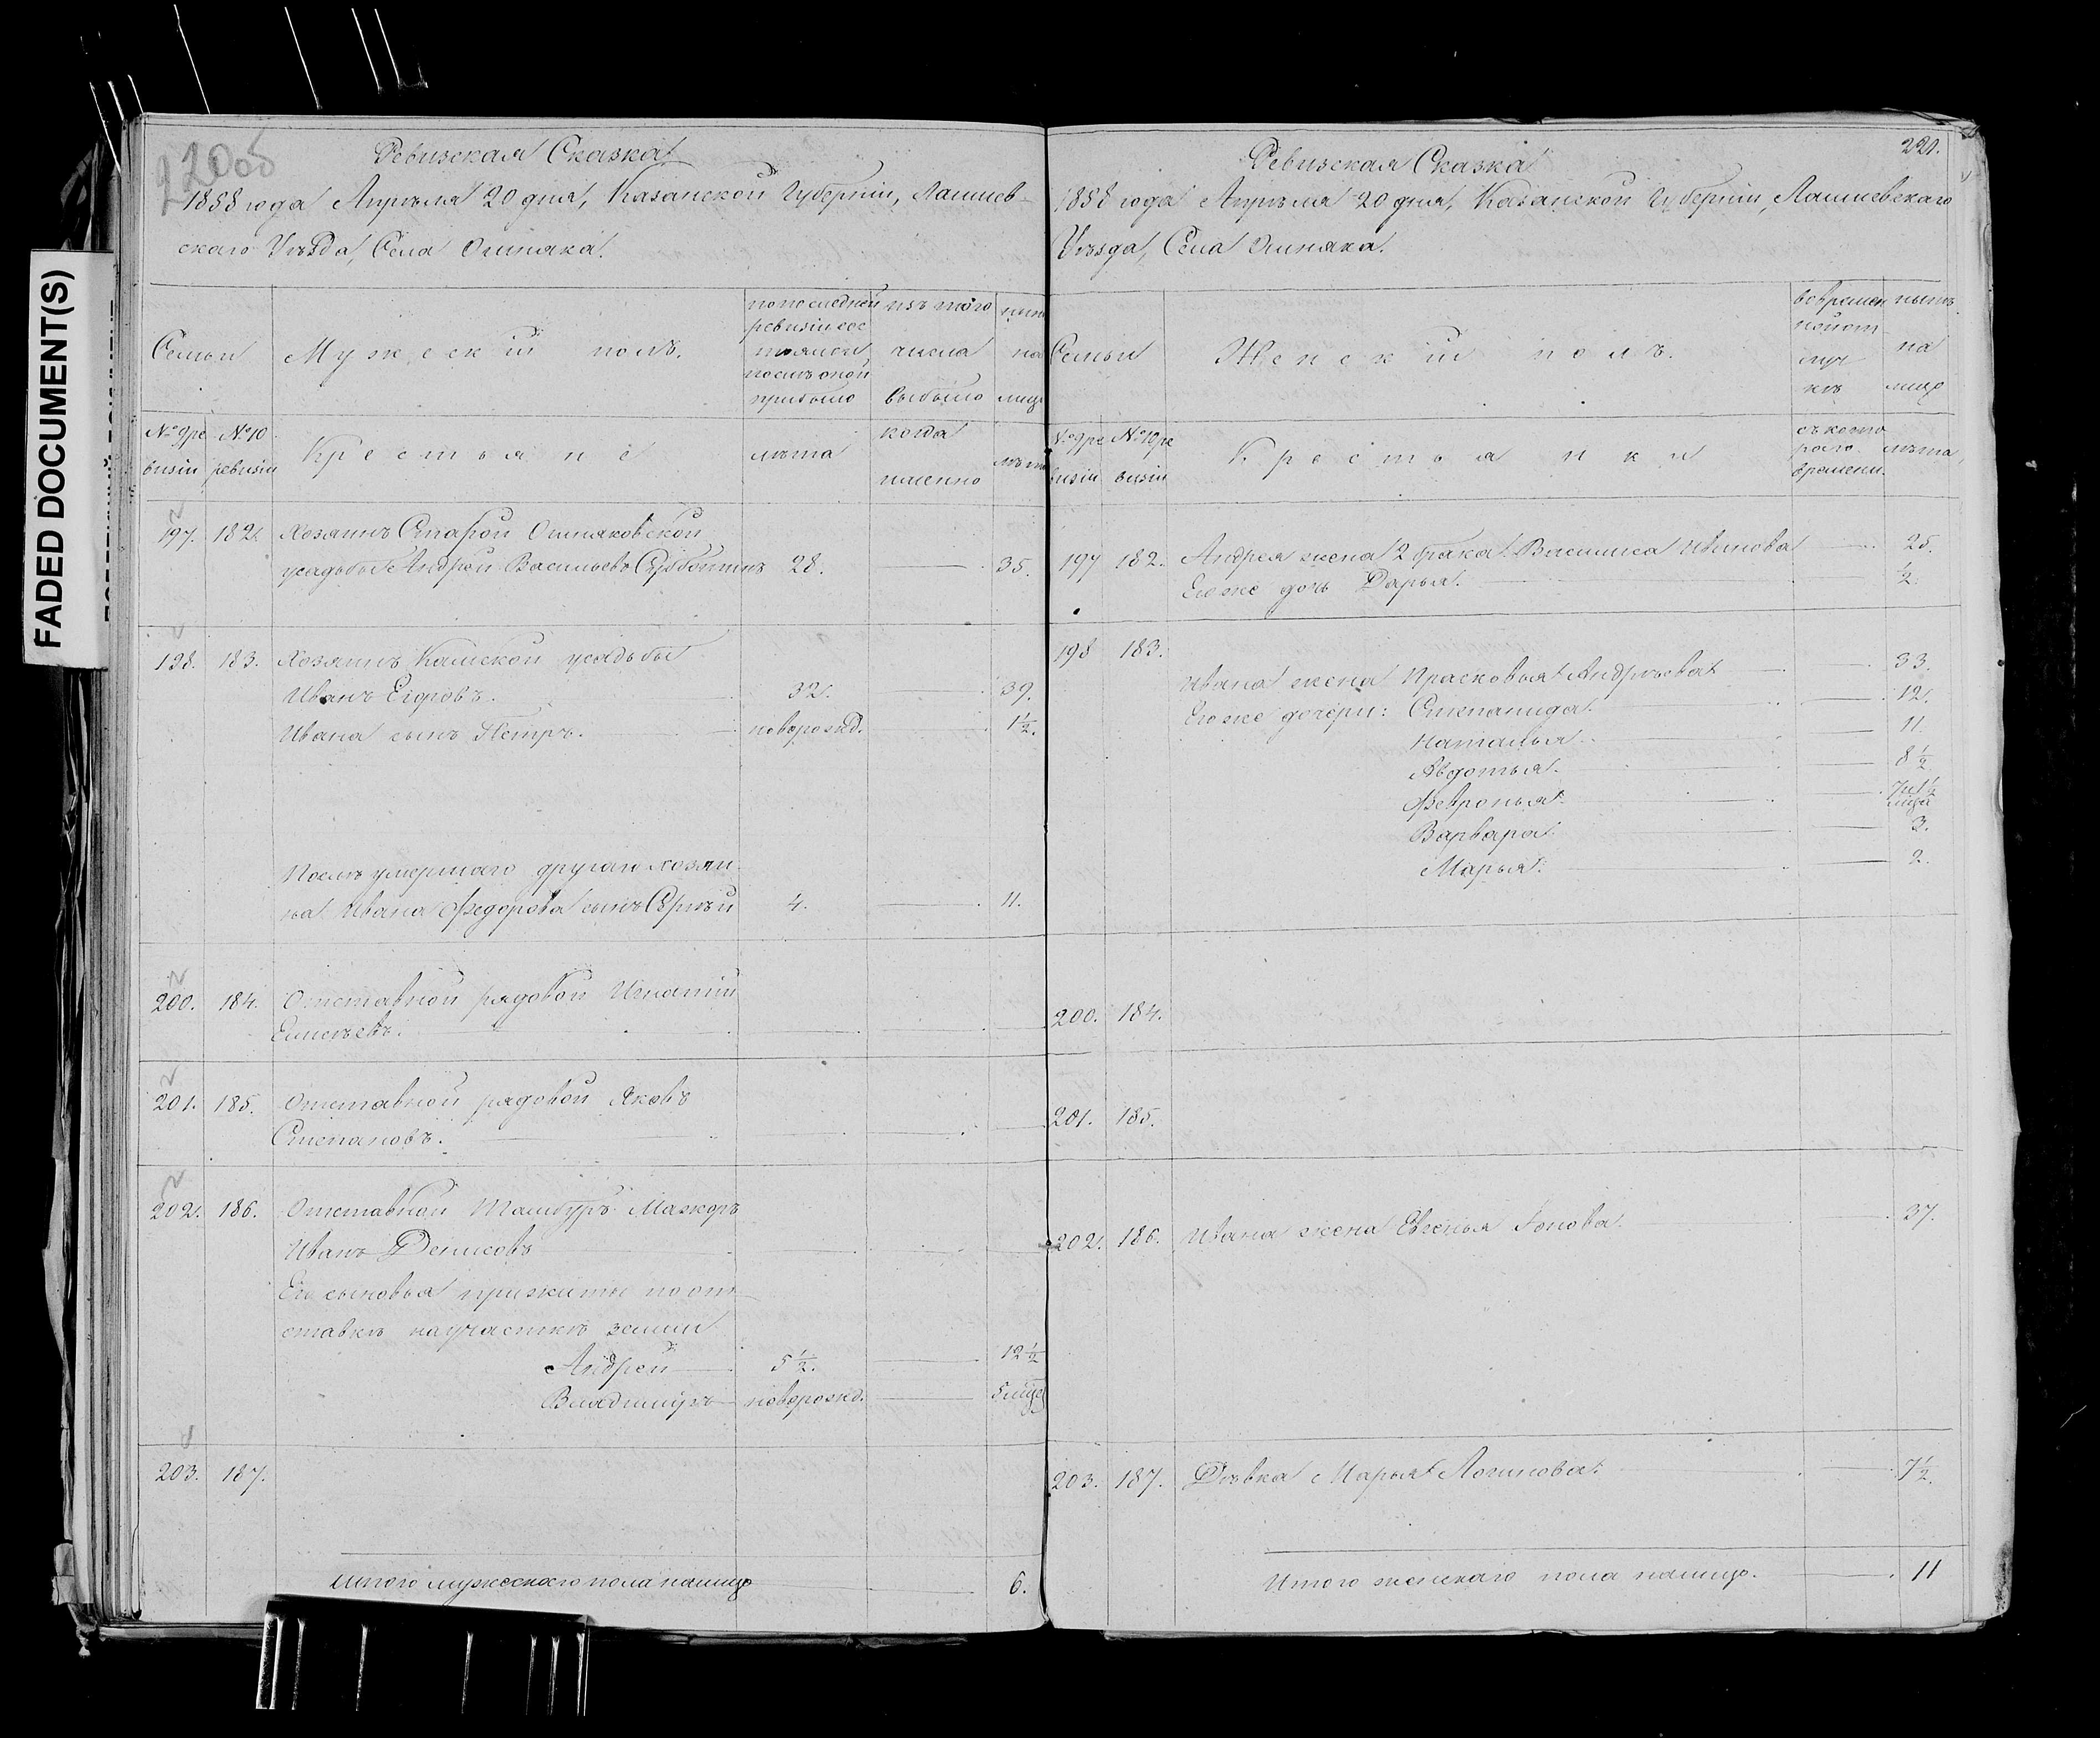 FADED DOCUMENT(S)
220об
Ревизская Сказка
1858 года Апрѣля 20 дня, Казанской Губерніи, Лаишев-
скаго Уѣзда, Села Ошняка.
Семьи
Мужескій полъ.
по послѣдней
ревизіи сос
тояло и
послѣ оной
прибыло
изъ того
числа
выбыло
нынѣ
на
лицо
№ 9 ре
визіи
№ 10
ревизіи
Крестьяне
лѣта
когда
именно
лѣта
197. 182. Хозяинъ Старой Ошняковской
усадьбы Андрей Васильевъ Субботинъ 28. 35.
198. 183. Хозяинъ Камской усадьбы
Иванъ Егоровъ. 32. 39.
Ивана сынъ Петръ. новорожд. 1½.
Послѣ умершаго другаго хозяи
на Ивана Федорова сынъ Сергѣй 4. 11.
200. 184. Отставной рядовой Игнатій
Елисѣевъ.
201. 185. Отставной рядовой Яковъ
Степановъ.
202. 186. Отставной Тамбуръ Мажоръ
Иванъ Денисовъ
Его сыновья прижиты по от
ставкѣ на участкѣ земли
Андрей 5½. 12½
Владимиръ новорожд. 5 мцов
203. 187.
Итого мужескаго пола налицо 6.
221.
Ревизская Сказка
1858 года Апрѣля 20 дня, Казанской Губерніи, Лаишевскаго
Уѣзда, Села Ошняка.
Семьи
Женскій полъ.
во времен
ной от
луч
кѣ
нынѣ
на
лицо
№ 9 ре
визіи
№ 10 ре
визіи
Крестьянки
съ кото
раго
времени.
лѣта
197 182. Андрея жена 2 брака Василиса Иванова 25.
Его же дочь Дарья. ½.
198 183.
Ивана жена Прасковья Андрѣева 33.
Его же дочери: Степанида 12.
Наталья 11.
Авдотья. 8½
Февронья
Варвара 3.
Марья. 2.
200. 184.
201. 185.
202. 186. Ивана жена Евгенья 37.
203. 187. Дѣвка Марья Логинова. 7½.
Итого женскаго пола налицо. 11